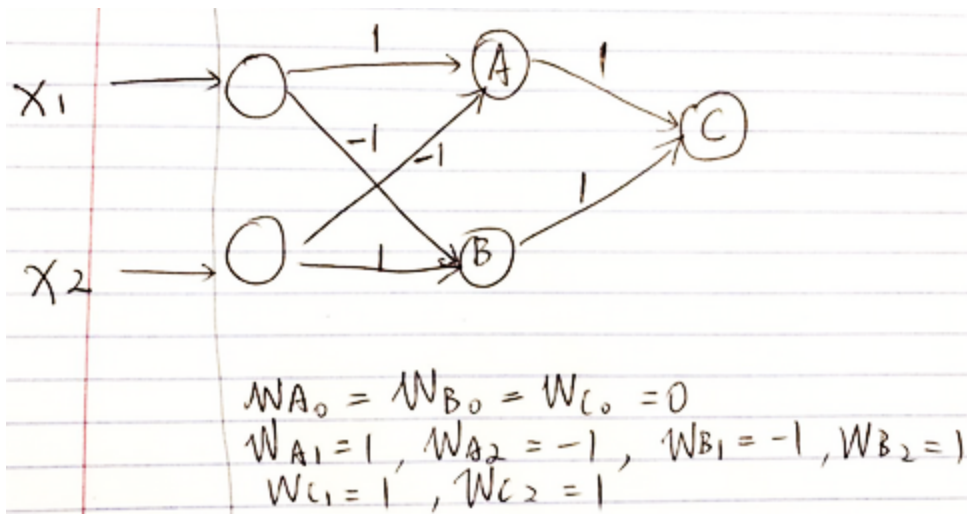 1
A
1
X1
-1
-1
C
1
X2
1
B
WA0 = WB0 = WC0 = 0
WA1 = 1, WA2 = -1, WB1 = -1, WB2 = 1
WC1 = 1, WC2 = 1